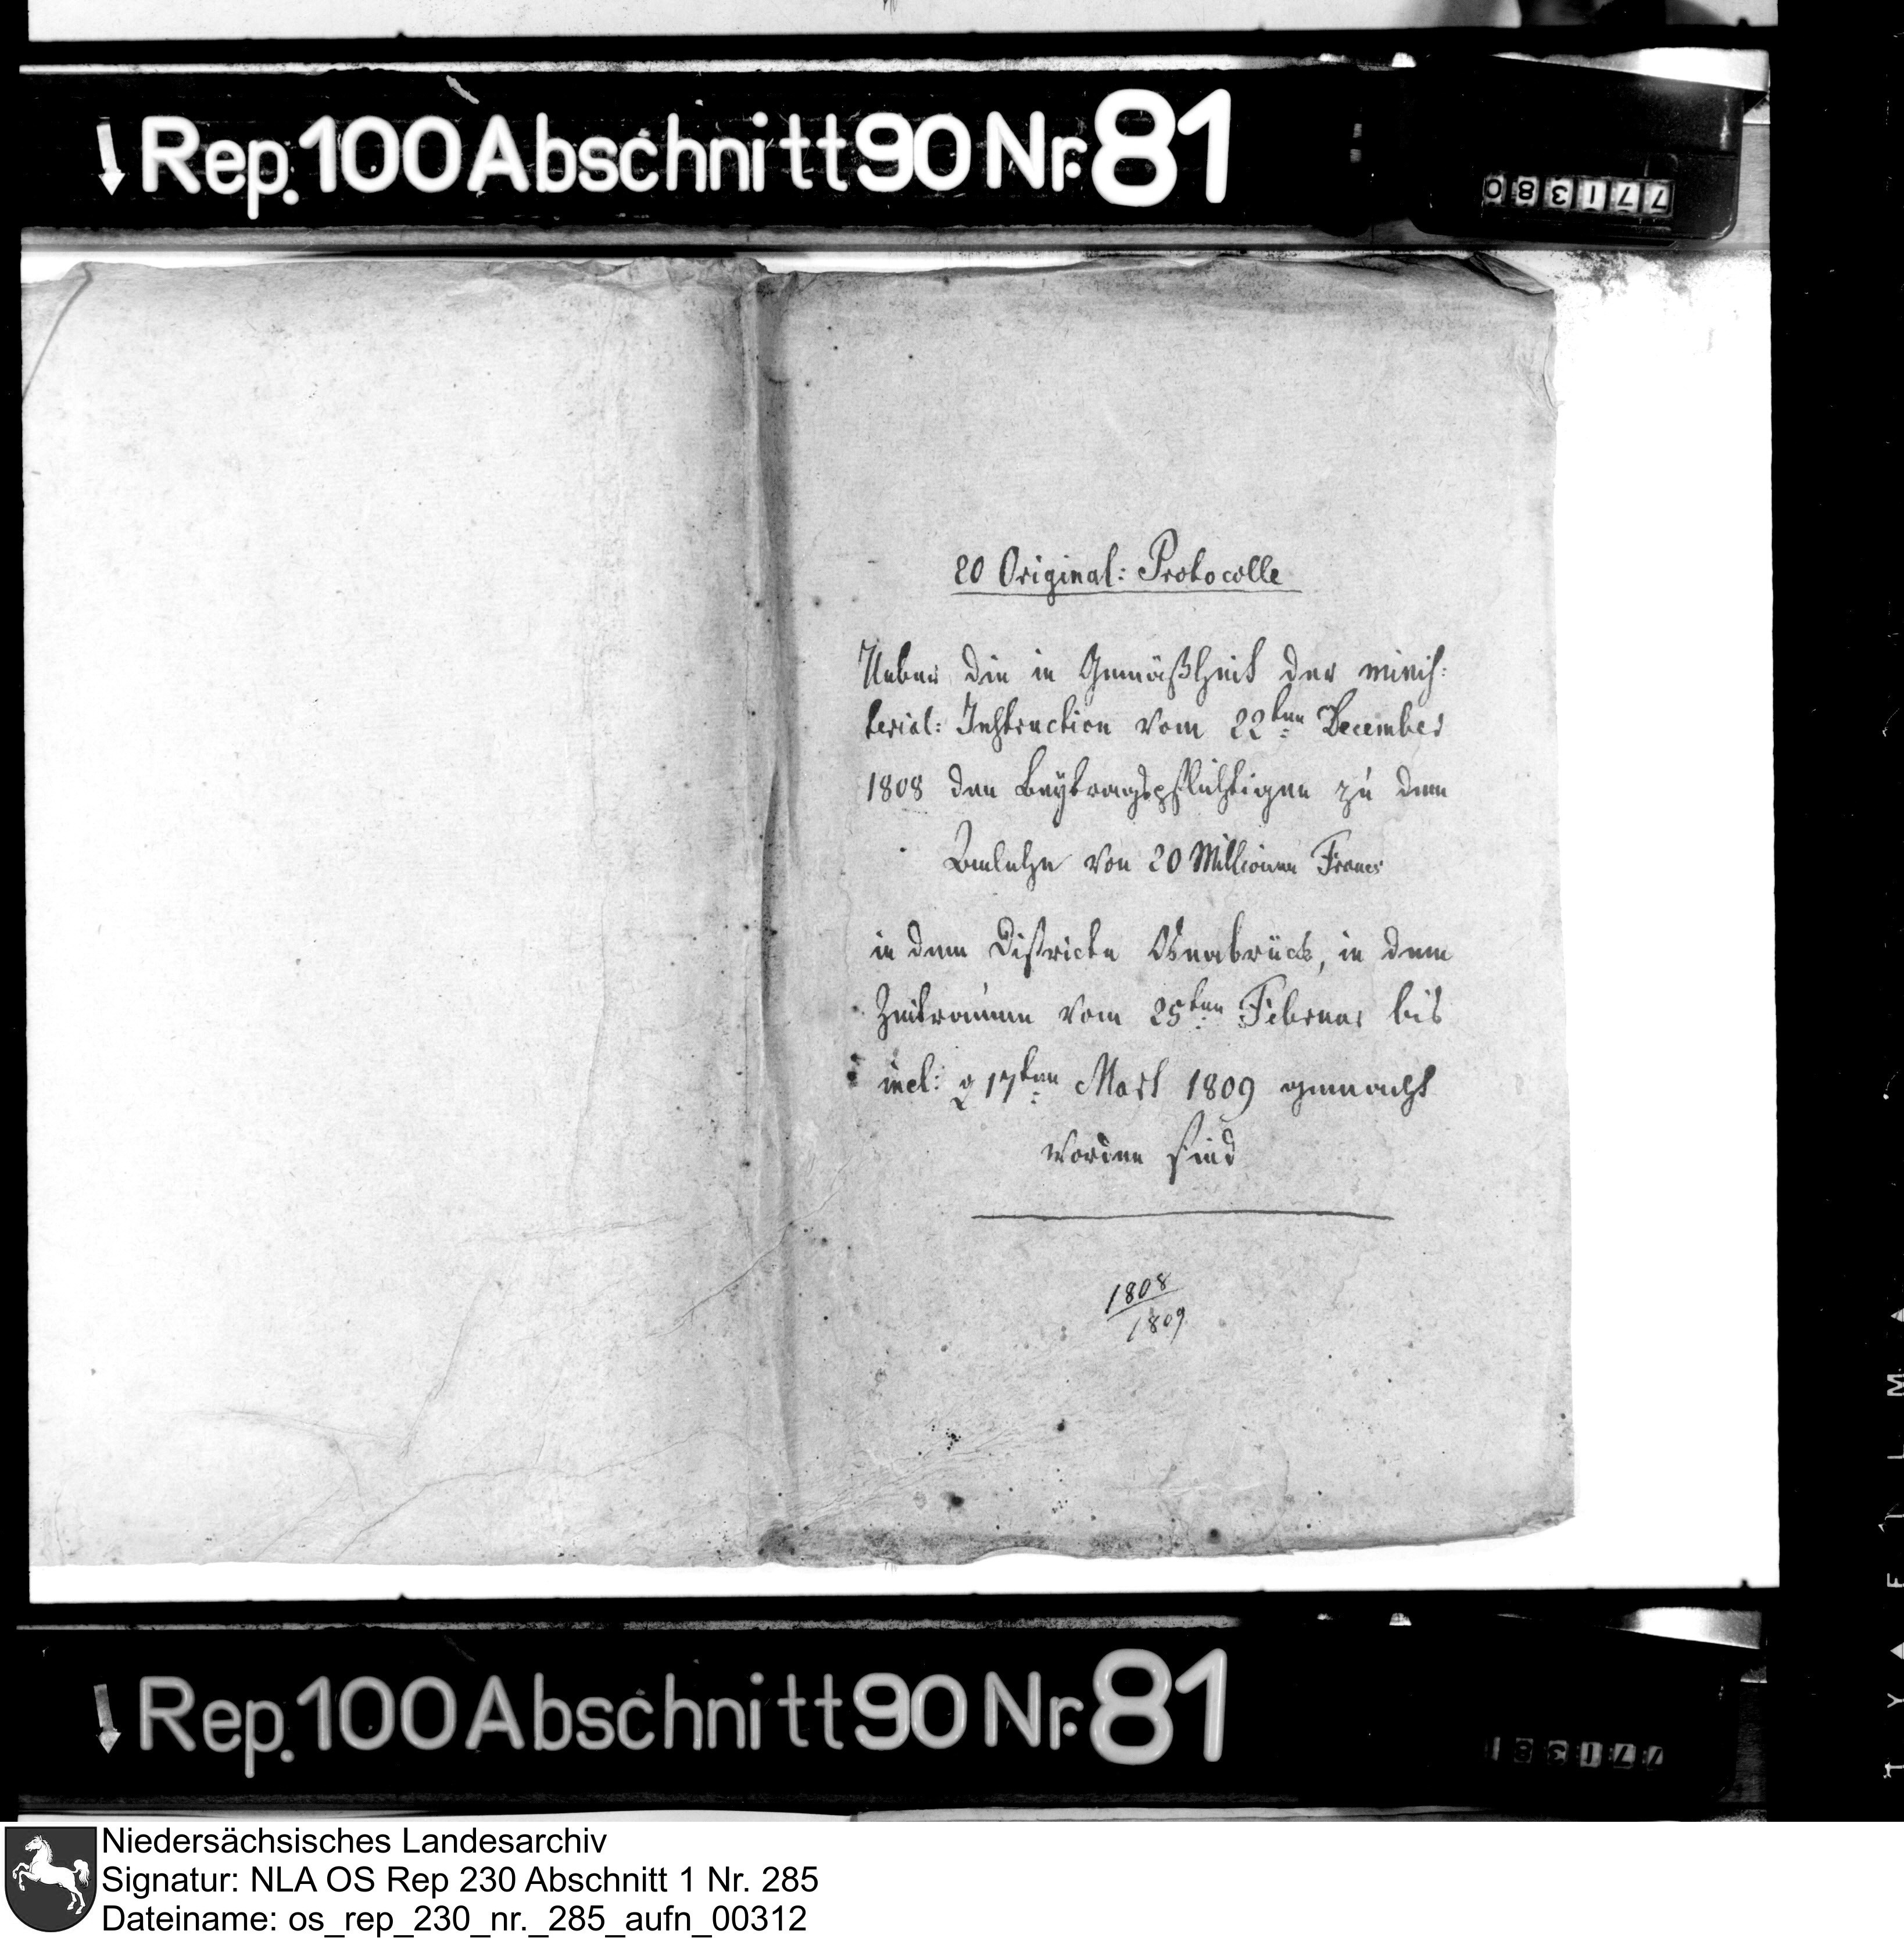 Rep. 100 Abschnitt 90 Nr. 81
083177
20 Original: Protocolle
Ueber die in Gemäßheit der minis:
terial: Instruction vom 22ten December
1808 den Beytragspflichtigen zu dem
Anlehn von 20 Millionen Francs
in dem Districte Osnabrück, in dem
Zeitraume vom 25ten Februar bis
incl: 17ten Mart 1809 gemacht
worden sind
1808
1809
Rep. 100 Abschnitt 90 Nr. 81
Niedersächsisches Landesarchiv
Signatur: NLA OS Rep 230 Abschnitt 1 Nr. 285
Dateiname: os_rep_230_nr._285_aufn_00312